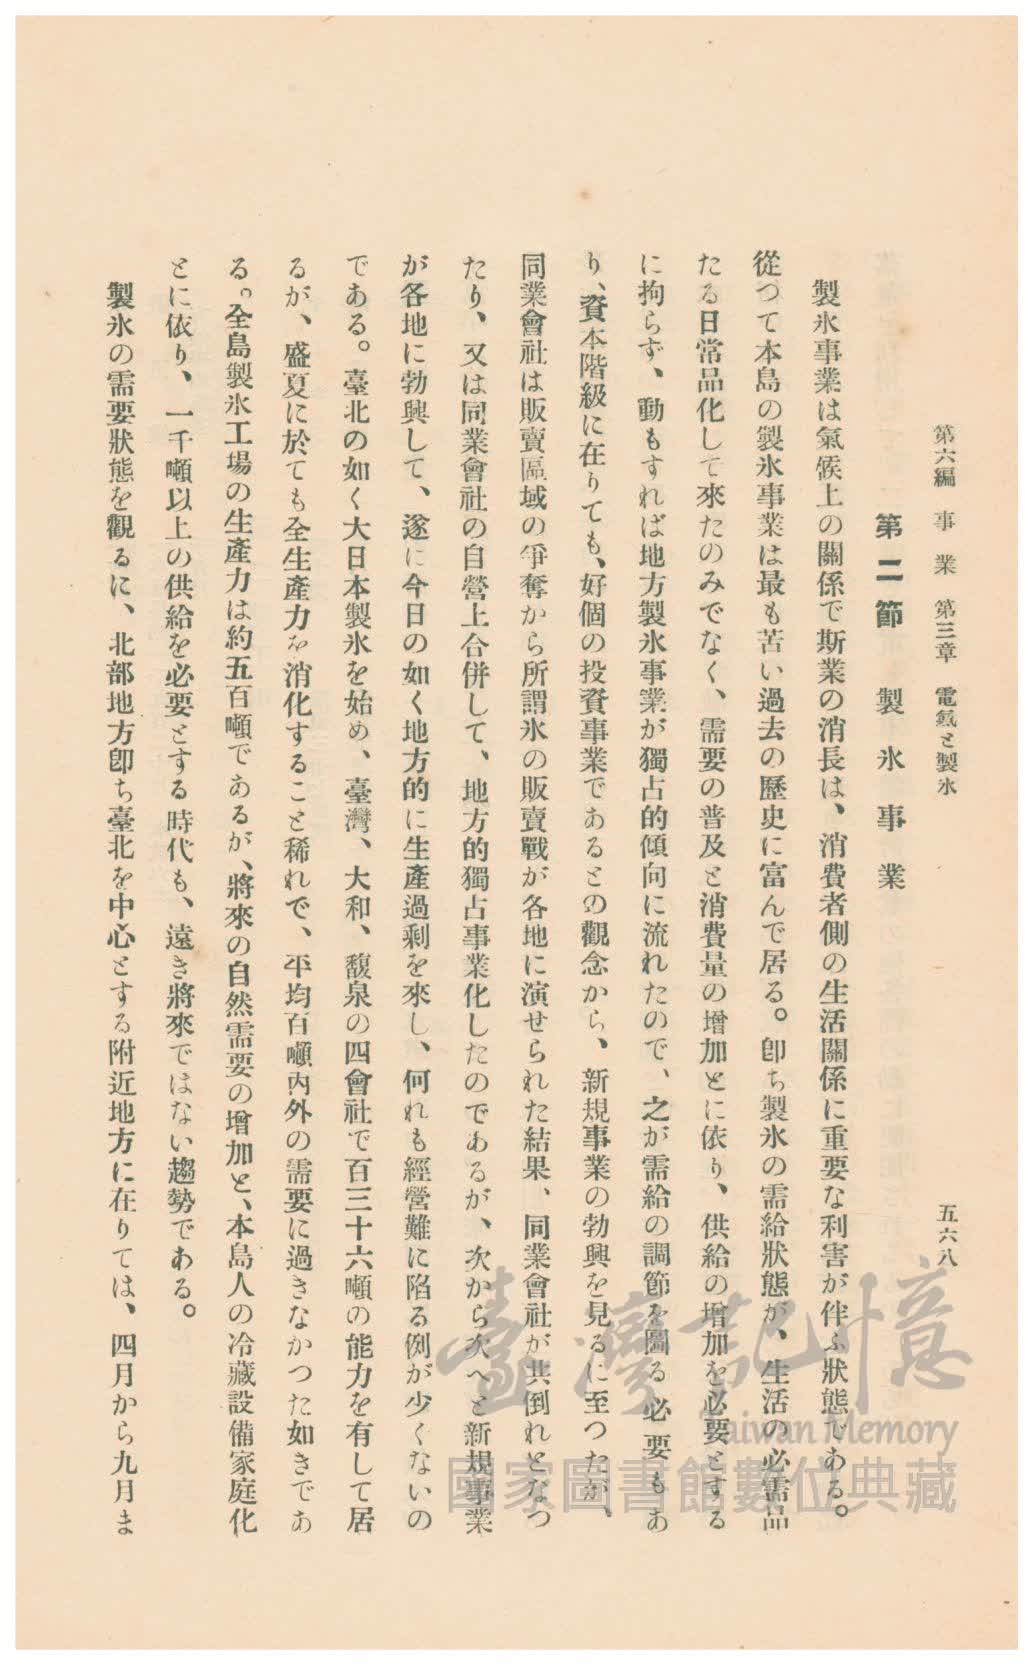 第六編　事　業　第三章　電氣と製氷
五六八
第二節　製氷事業
製氷事業は氣候上の關係で斯業の消長は、消費者側の生活關係に重要な利害が伴ふ狀態である。
從つて本島の製氷事業は最も苦い過去の歷史に富んで居る。卽ち製氷の需給狀態が、生活の必需品
たる日常品化して來たのみでなく、需要の普及と消費量の增加とに依り、供給の增加を必要とする
に拘らず、動もすれば地方製氷事業が獨占的傾向に流れたので、之が需給の調節を圖る必要もあ
り、資本階級に在りても、好個の投資事業であるとの觀念から、新規事業の勃興を見るに至つたが、
同業會社は販賣區域の爭奪から所謂氷の販賣戰が各地に演せられた結果、同業會社が共倒れとなつ
たり、又は同業會社の自營上合併して、地方的獨占事業化したのであるが、次から次へと新規事業
が各地に勃興して、遂に今日の如く地方的に生產過剩を來し、何れも經營難に陷る例が少くないの
である。臺北の如く大日本製氷を始め、臺灣、大和、馥泉の四會社で百三十六噸の能力を有して居
るが、盛夏に於ても全生產力を消化すること稀れで、平均百噸內外の需要に過きなかつた如きであ
る。全島製氷工場の生產力は約五百噸であるが、將來の自然需要の增加と、本島人の冷藏設備家庭化
とに依り、一千噸以上の供給を必要とする時代も、遠き將來ではない趨勢である。
製氷の需要狀態を觀るに、北部地方卽ち臺北を中心とする附近地方に在りては、四月から九月ま
臺灣記憶
Taiwan Memory
國家圖書館數位典藏